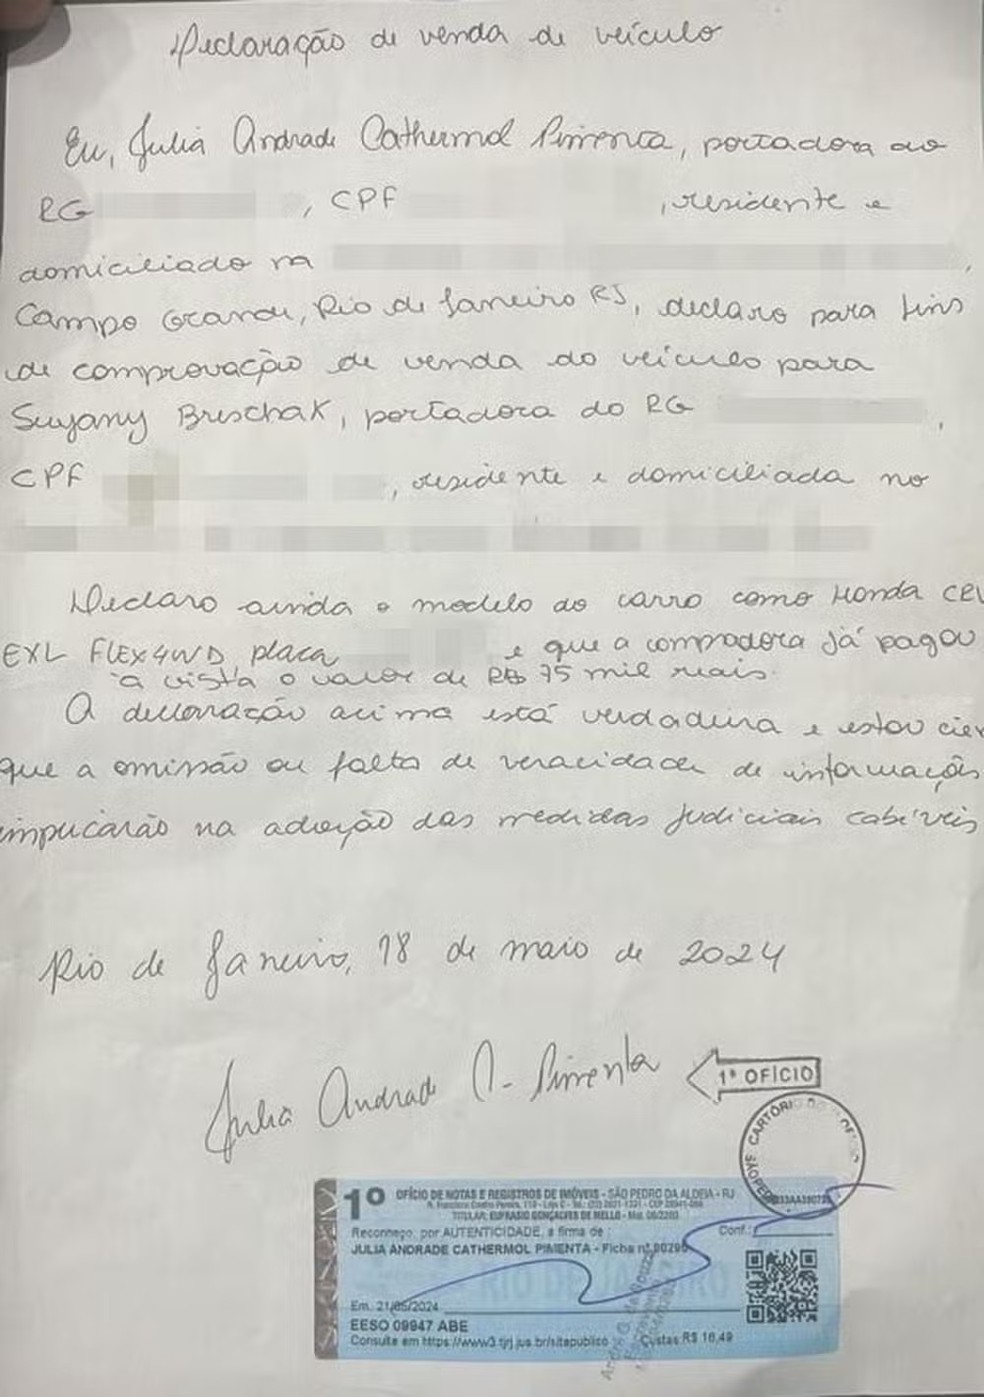 Declaração de venda de veículo
Eu, Julia Andrade Cathermol Pimenta, portadora do
RG , CPF , residente e
domiciliado na ,
Campo Grande, Rio de Janeiro RJ, declaro para fins
de comprovação de venda do veículo para
Suyany Breschak, portadora do RG ,
CPF , residente e domiciliada no
Declaro ainda o modelo do carro como Honda CRV
EXL FLEX4WD, placa e que a compradora já pagou
à vista o valor de R$ 75 mil reais.
A declaração acima está verdadeira e estou cien
que a omissão ou falta de veracidade de informações
implicarão na adoção das medidas judiciais cabíveis
Rio de Janeiro, 18 de maio de 2024
Julia Andrade C. Pimenta
1º OFÍCIO
CARTÓRIO DO
1º OFÍCIO DE NOTAS E REGISTROS DE IMÓVEIS - SÃO PEDRO DA ALDEIA - RJ
TITULAR: EUFRASIO GONÇALVES DE MELLO -
Reconheço, por AUTENTICIDADE, a firma de :
Conf.:
JULIA ANDRADE CATHERMOL PIMENTA - Ficha nº
RIO DE JANEIRO
Em. 21/05/2024
EESO 09947 ABE
Consulte em https://www3.tjrj.jus.br/sitepublico Custas R$ 16,49